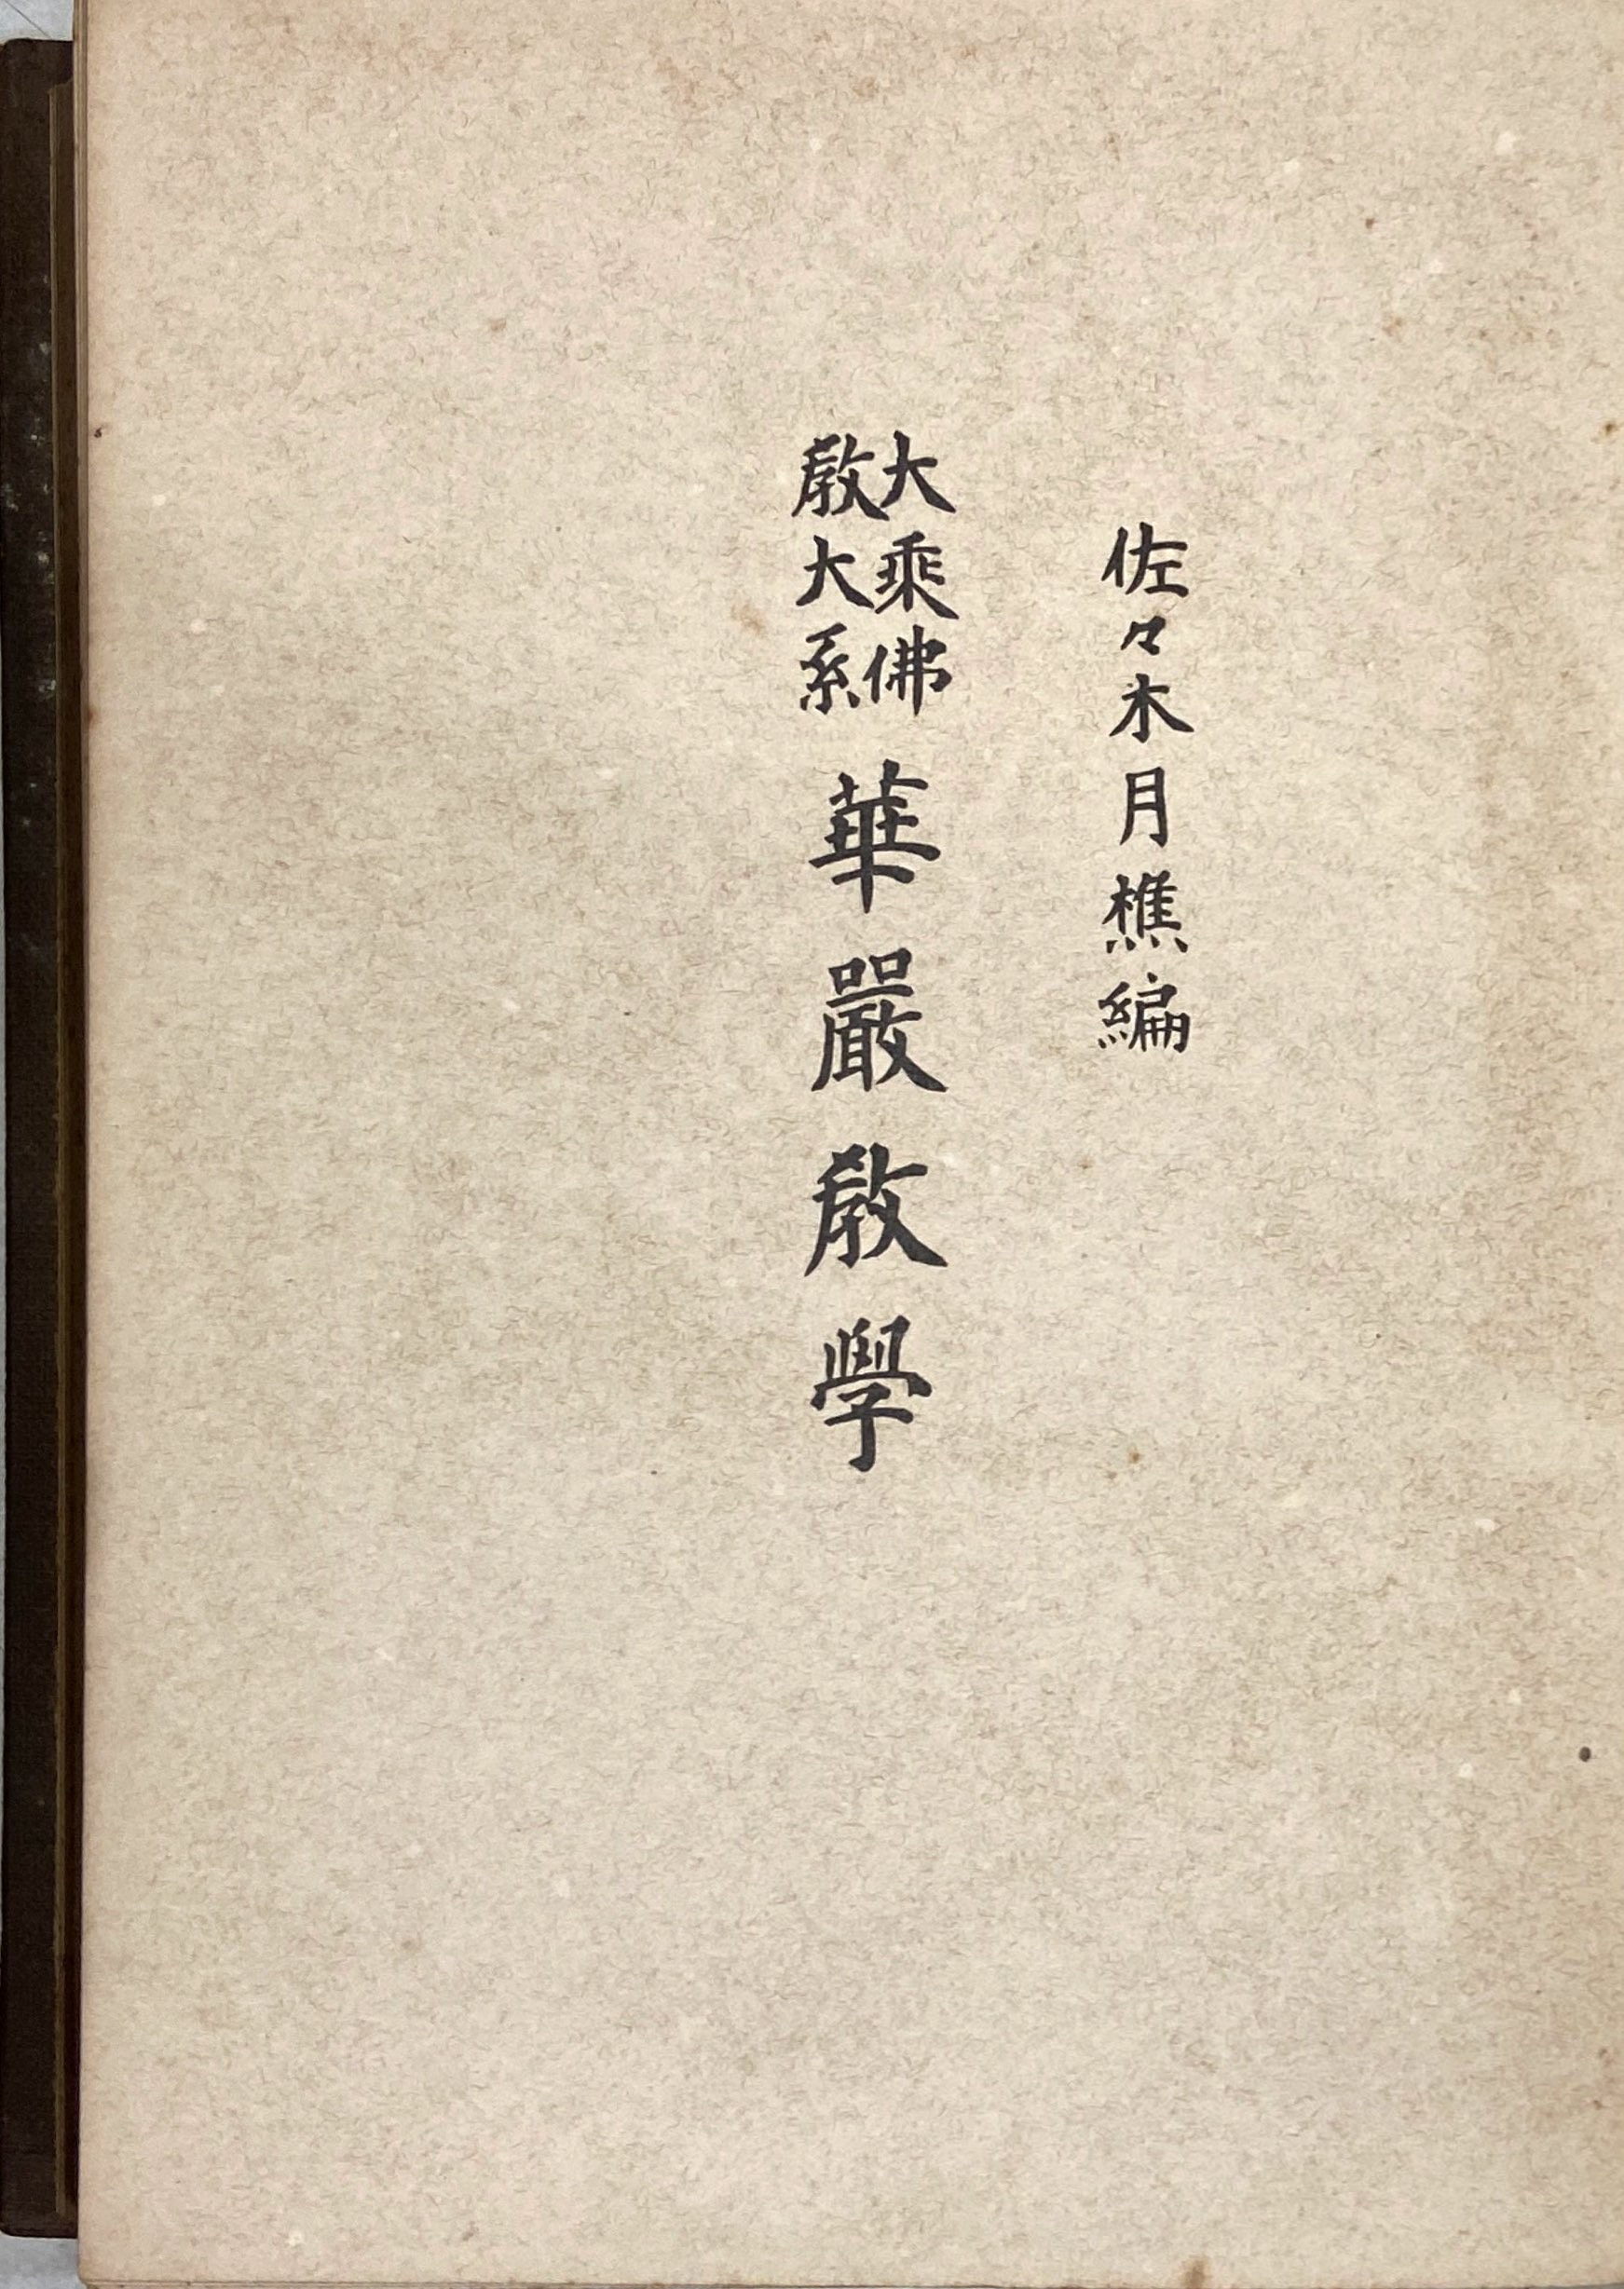 佐々木月樵編
大乘佛
敎大系
華嚴敎學